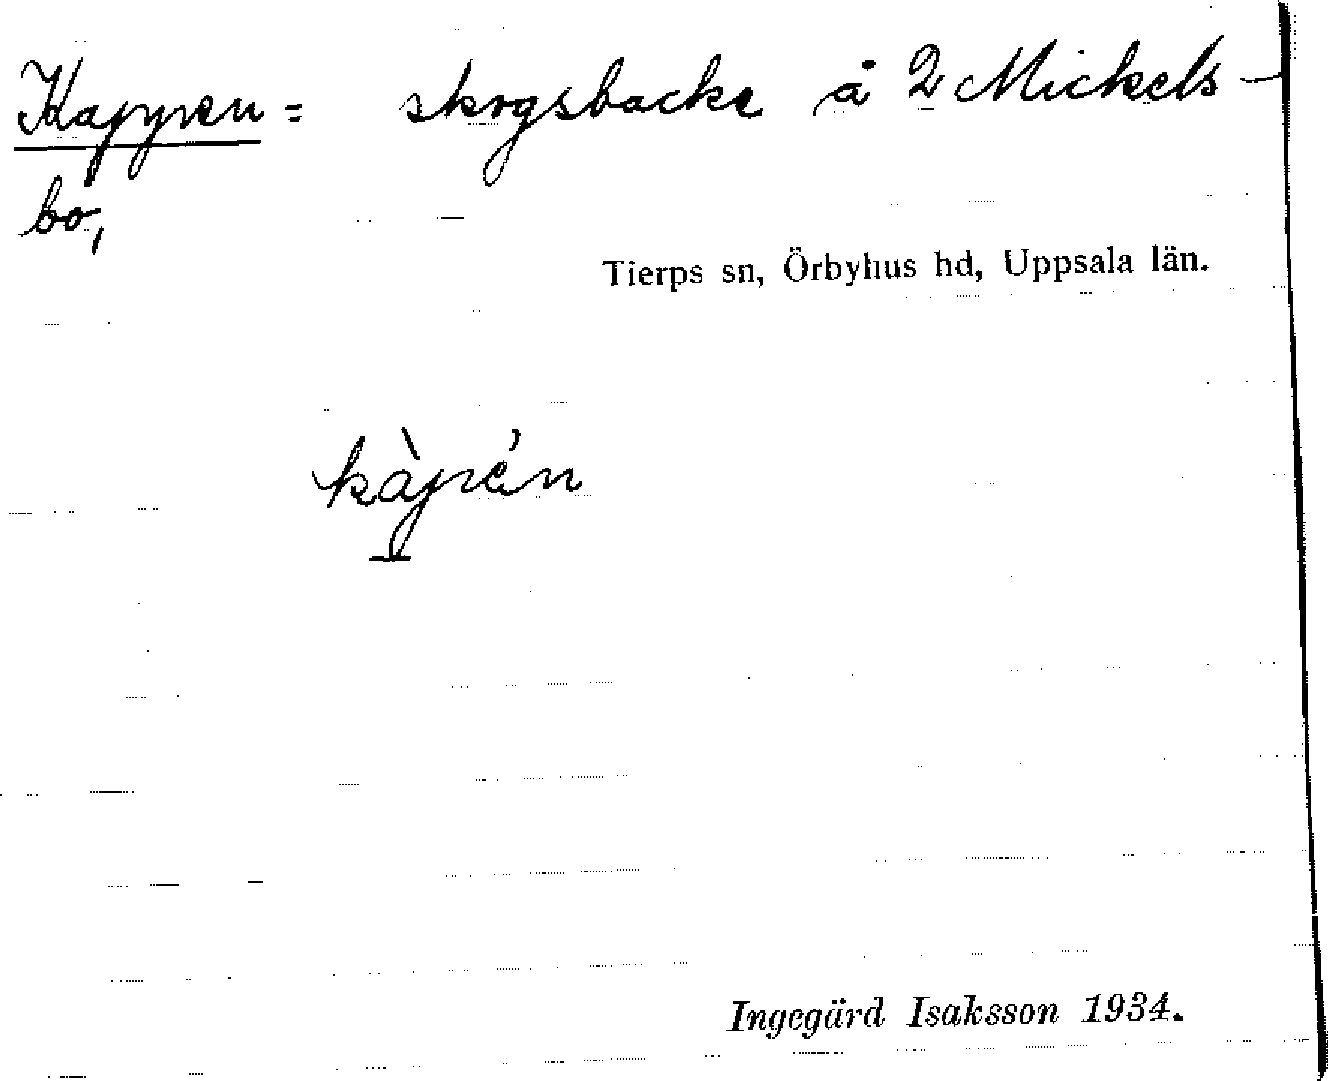 Kappen = skogsbacke å 2 Mickels-
bo,
Tierps sn, Örbyhus hd, Uppsala län.
kàpe̓n
Ingegärd Isaksson 1934.